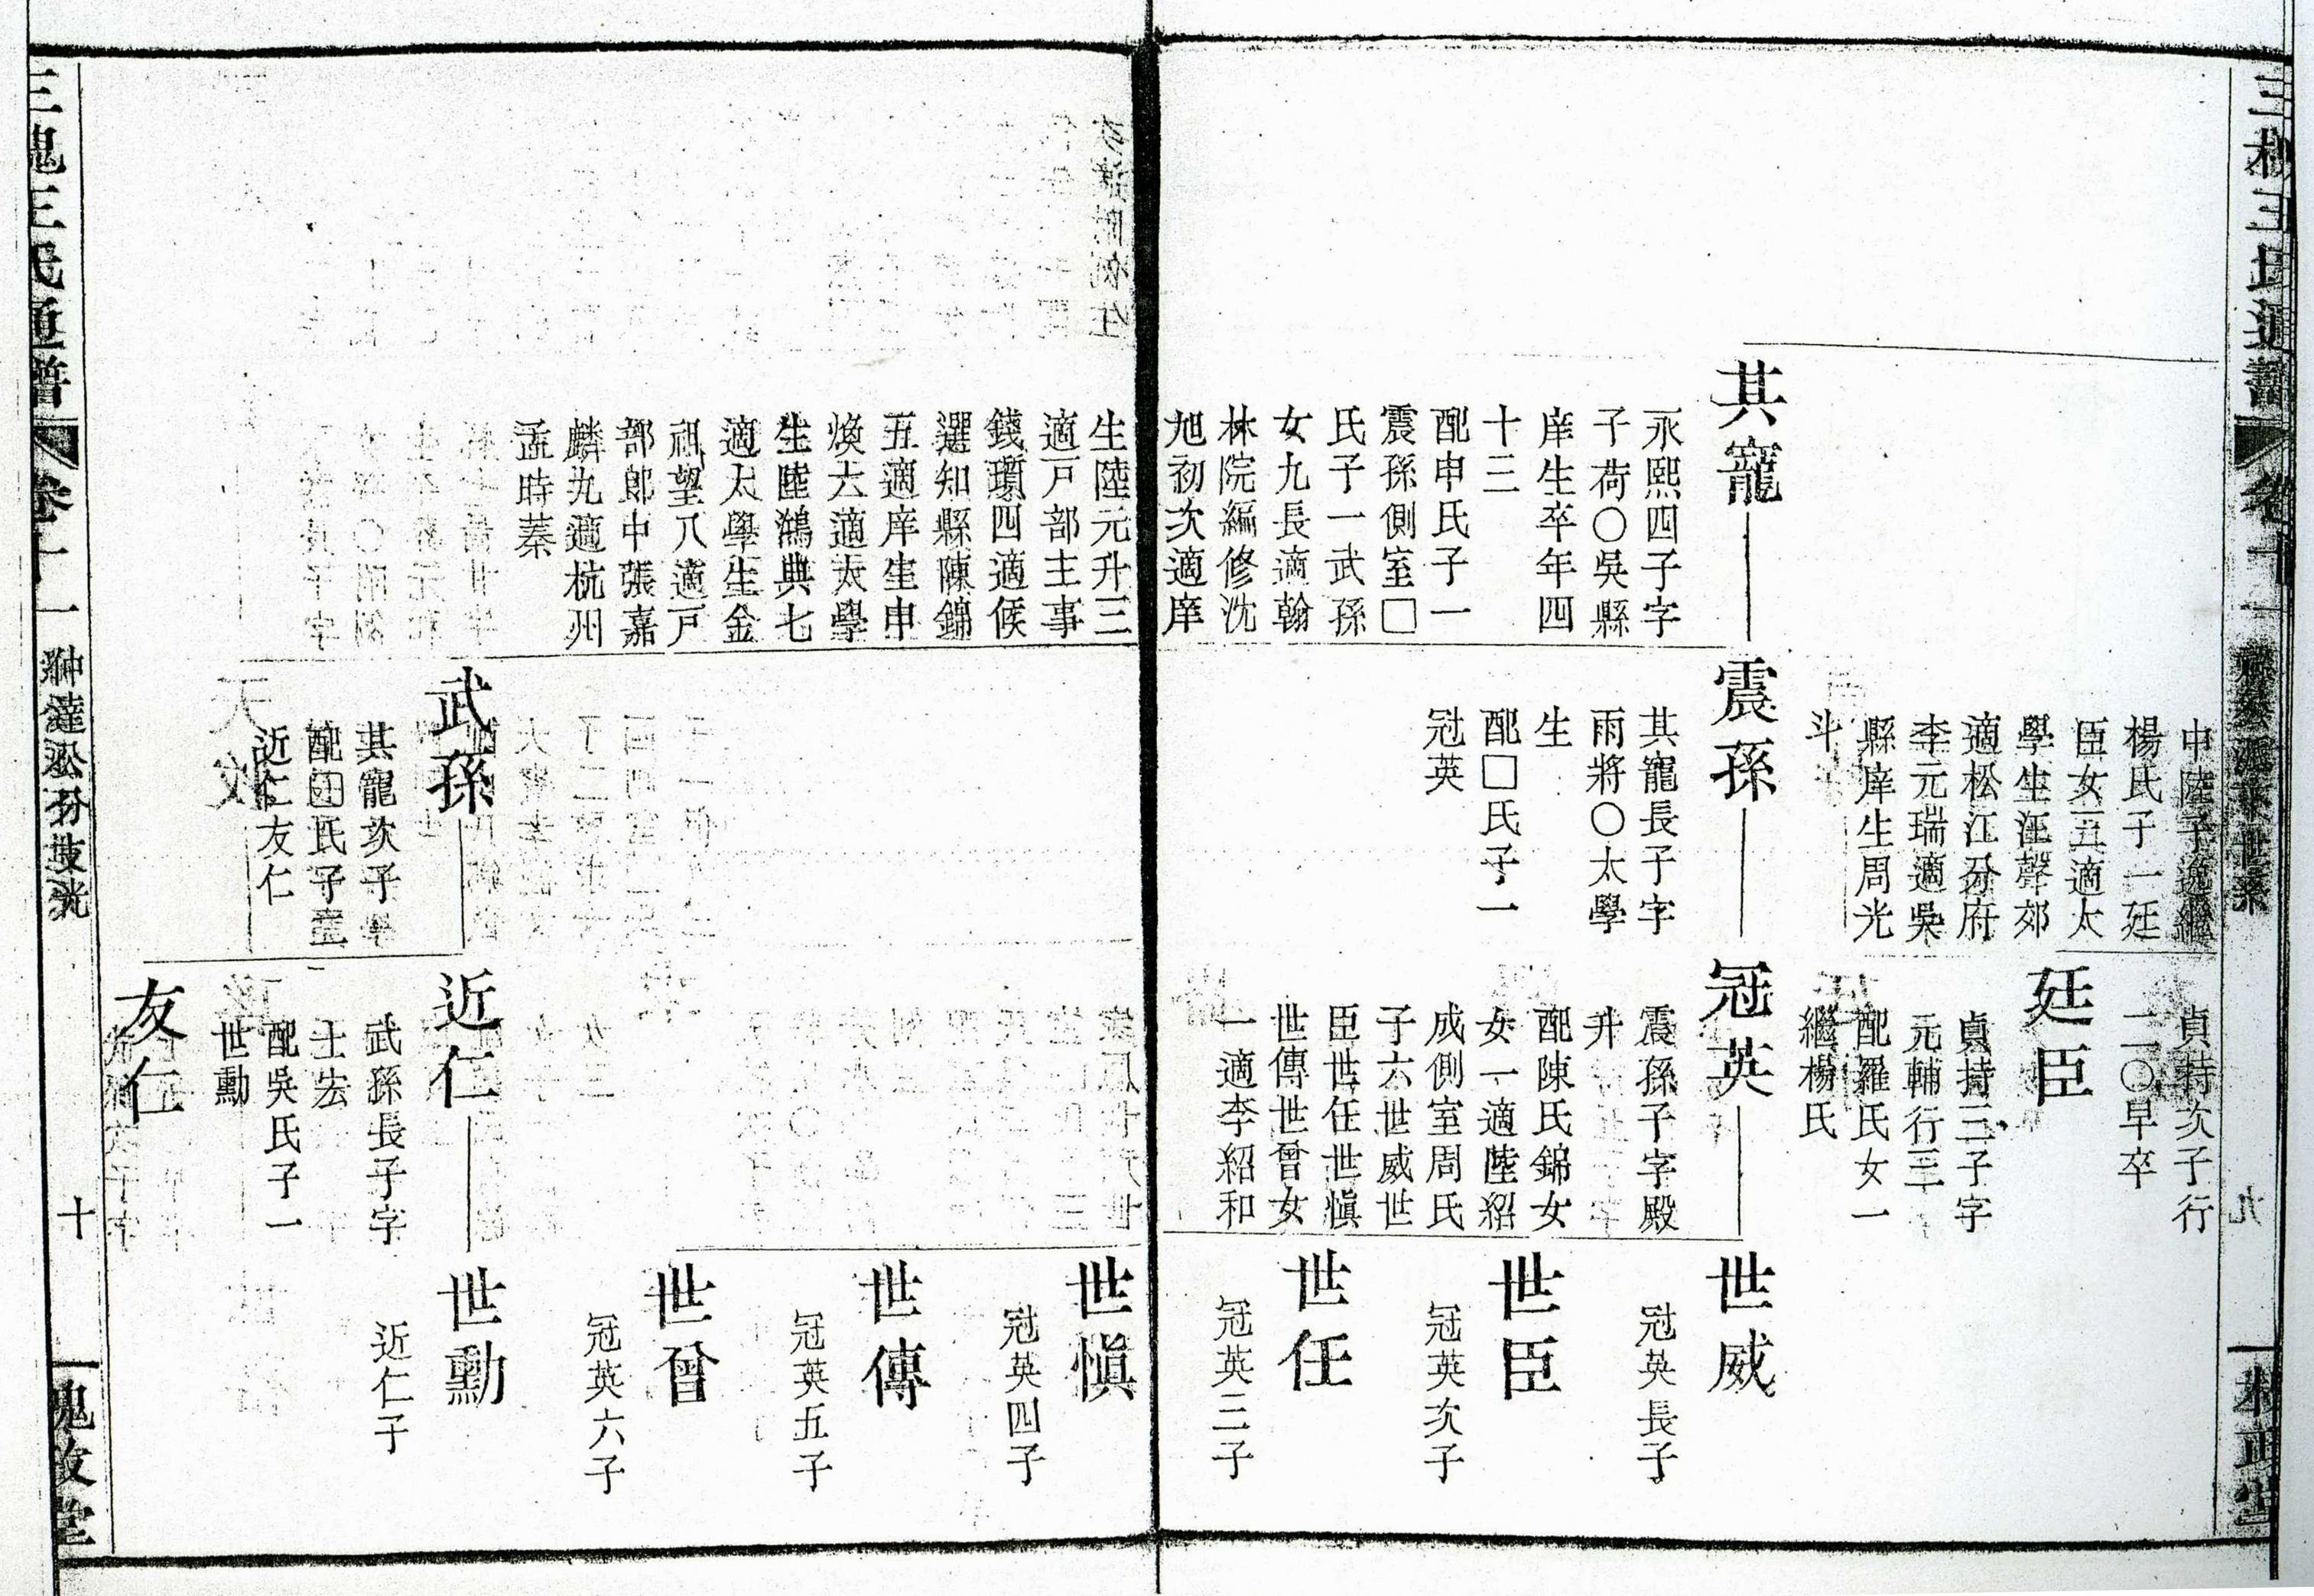 中陸子逸繼
楊氏子一廷
臣女五適太
學生汪聲郊
適松江分府
李元瑞適吳
縣庠生周光
斗
貞持次子行
二〇早卒
廷臣
貞持三子字
元輔行三
配羅氏女一
繼楊氏
其寵
永熙四子字
子荷〇吳縣
庠生卒年四
十三
配申氏子一
震孫側室□
氏子一武孫
女九長適翰
林院編修沈
旭初次適庠
震孫
其寵長子字
雨將〇太學
生
配□氏子一
冠英
冠英
震孫子字殿
升
配陳氏錦女
女一適陸紹
成側室周氏
子六世威世
臣世任世愼
世傳世曾女
一適李紹和
世威
冠英長子
世臣
冠英次子
世任
冠英三子
生陸元升三
適戸部主事
錢瓆四適候
選知縣陳錦
五適庠生申
煥六適太學
生陸鴻典七
適太學生金
祖望八適戸
部郎中張嘉
麟九適杭州
孟時蓁
世愼
冠英四子
世傳
冠英五子
世曾
冠英六子
武孫
其寵次子
配□氏子二
近仁友仁
近仁
武孫長子字
士宏
配吳氏子一
世勳
世勳
近仁子
友仁
三槐王氏通譜
卷十一
十